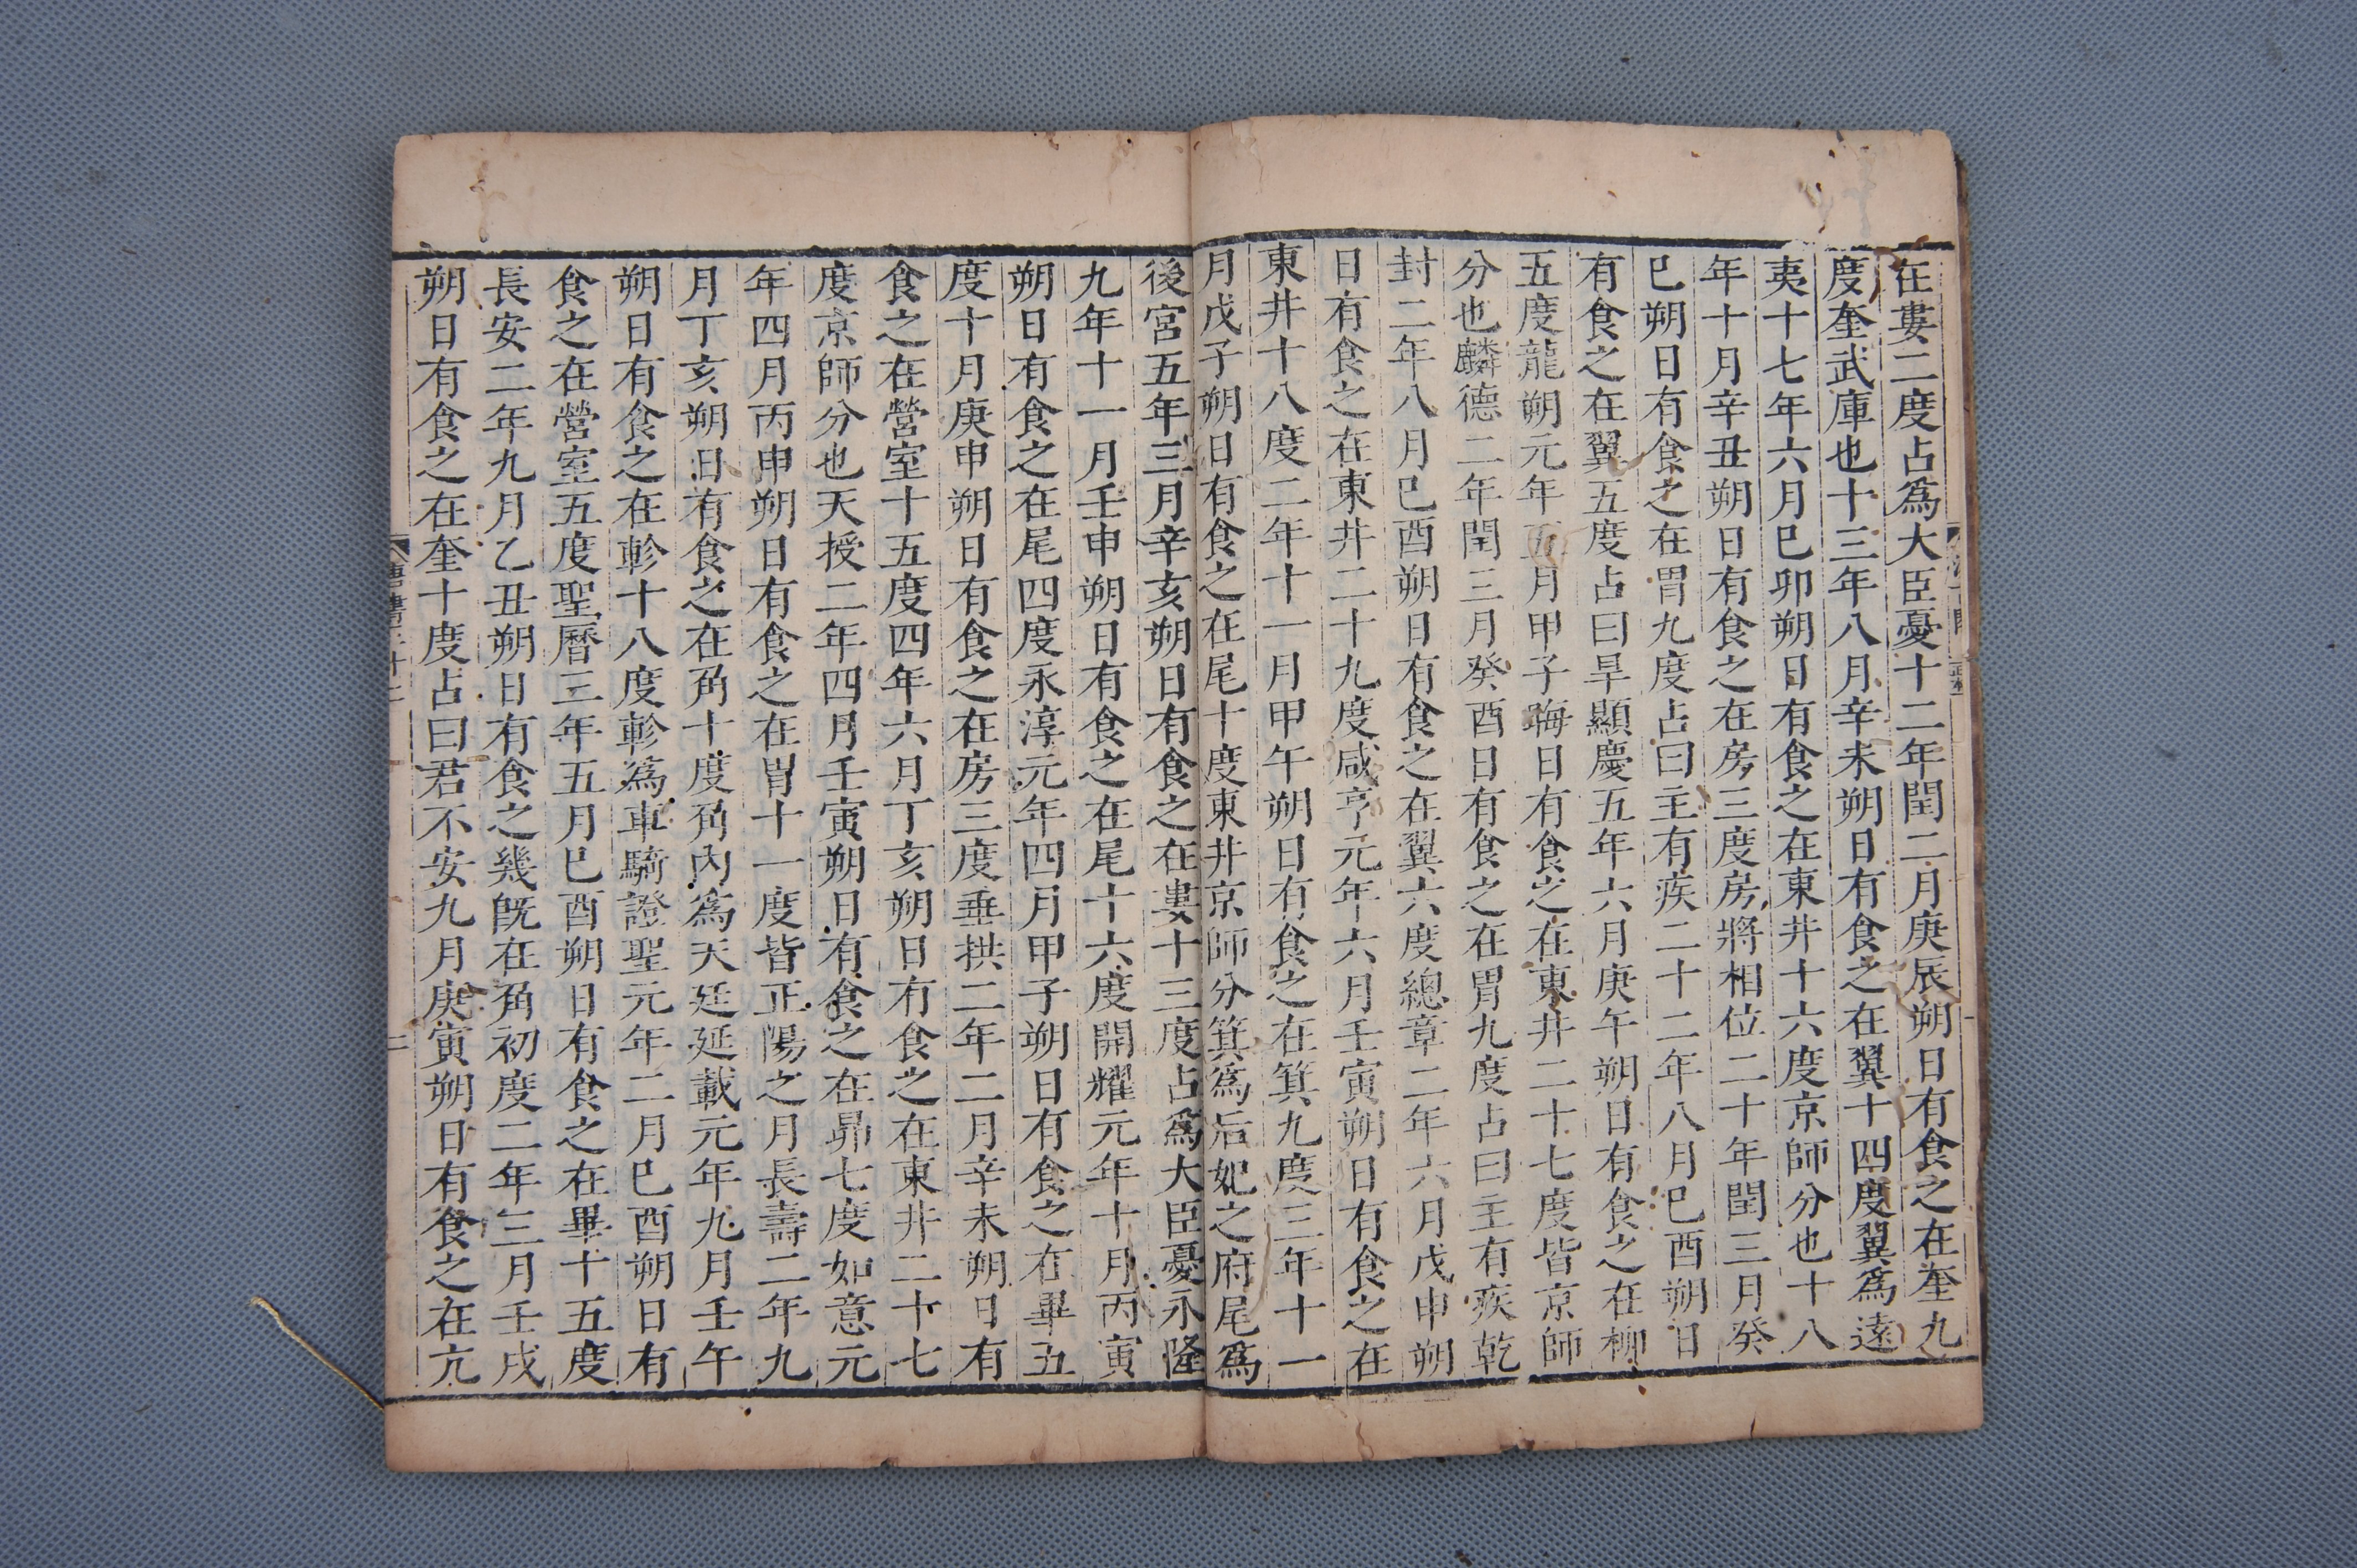 在婁二度占爲大臣憂十二年閏二月庚辰朔日有食之在奎九
度奎武庫也十三年八月辛未朔日有食之在翼十四度翼爲遠
夷十七年六月巳卯朔日有食之在東井十六度京師分也十八
年十月辛丑朔日有食之在房三度房將相位二十年閏三月癸
巳朔日有食之在胃九度占曰主有疾二十二年八月巳酉朔日
有食之在翼五度占曰旱顯慶五年六月庚午朔日有食之在柳
五度龍朔元年五月甲子晦日有食之在東井二十七度皆京師
分也麟德二年閏三月癸酉日有食之在胃九度占曰主有疾乾
封二年八月巳酉朔日有食之在翼六度總章二年六月戊申朔
日有食之在東井二十九度咸亨元年六月壬寅朔日有食之在
東井十八度二年十一月甲午朔日有食之在箕九度三年十一
月戊子朔日有食之在尾十度東井京師分箕爲后妃之府尾爲
後宮五年三月辛亥朔日有食之在婁十三度占爲大臣憂永隆
九年十一月壬申朔日有食之在尾十六度開耀元年十月丙寅
朔日有食之在尾四度永淳元年四月甲子朔日有食之在畢五
度十月庚申朔日有食之在房三度垂拱二年二月辛未朔日有
食之在營室十五度四年六月丁亥朔日有食之在東井二十七
度京師分也天授二年四月壬寅朔日有食之在昴七度如意元
年四月丙申朔日有食之在胃十一度皆正陽之月長壽二年九
月丁亥朔日有食之在角十度角內爲天廷延載元年九月壬午
朔日有食之在軫十八度軫爲車騎證聖元年二月巳酉朔日有
食之在營室五度聖曆三年五月巳酉朔日有食之在畢十五度
長安二年九月乙丑朔日有食之幾旣在角初度二年三月壬戌
朔日有食之在奎十度占曰君不安九月庚寅朔日有食之在亢
唐書三十二
二